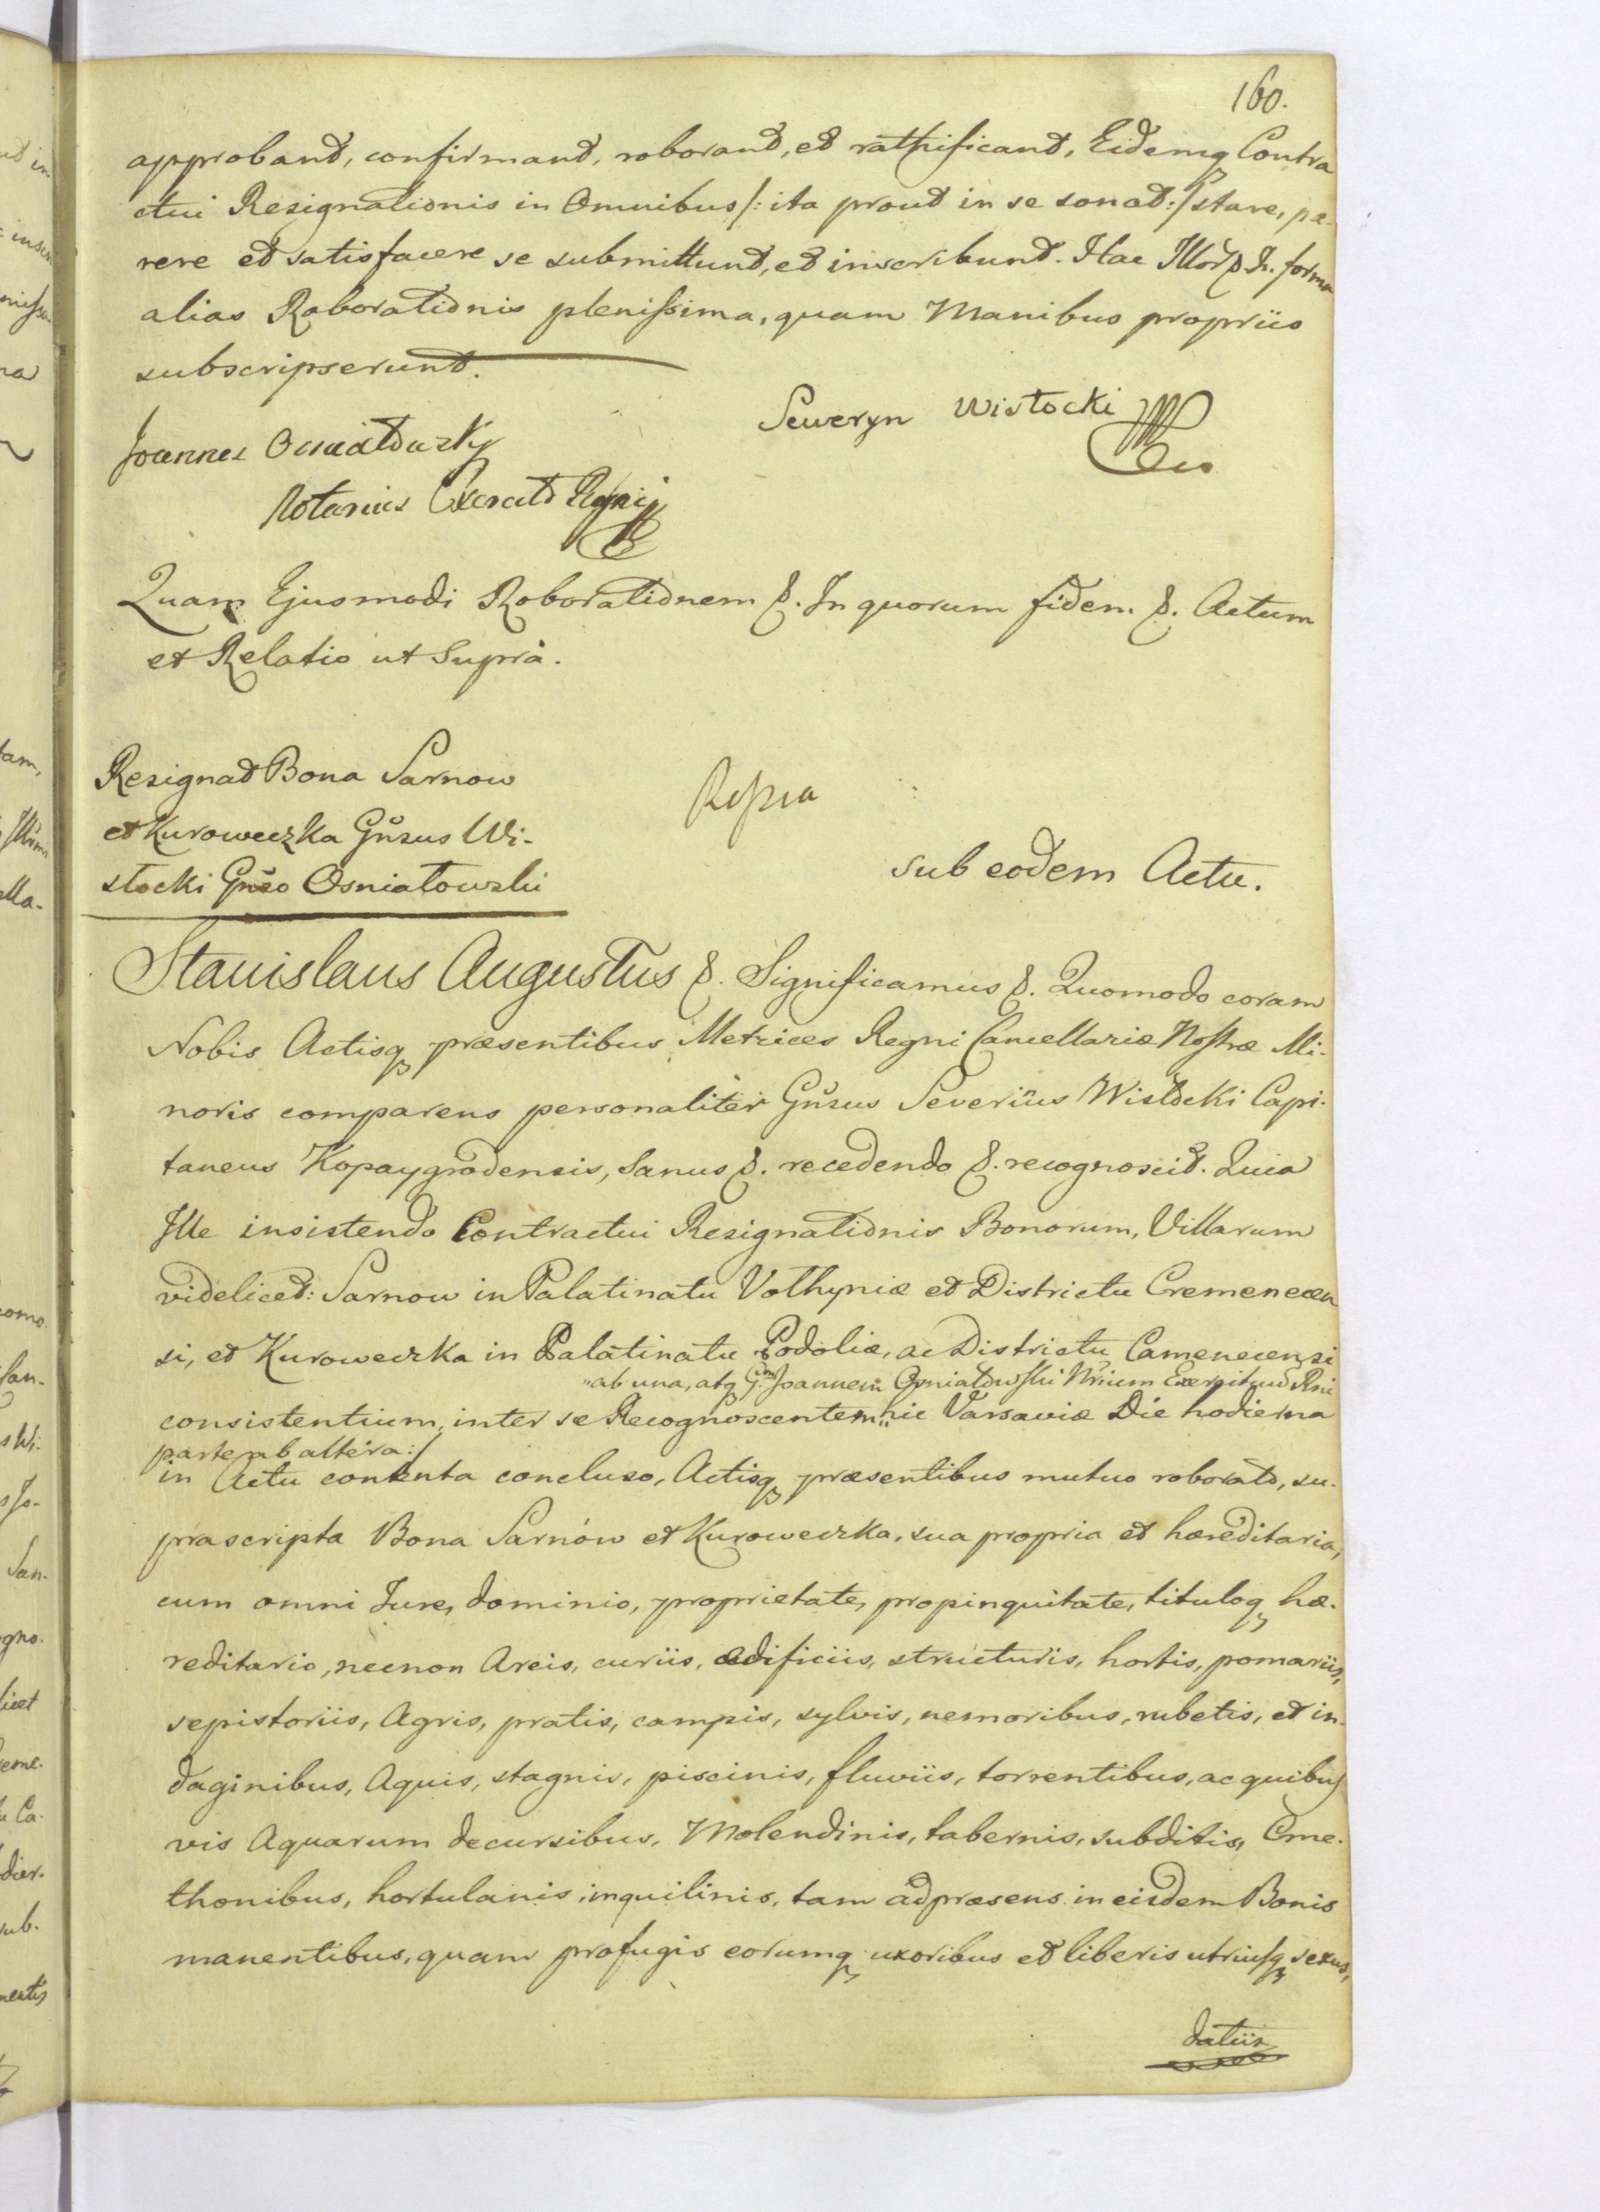 160.
approband, confirmand, roborand, et rathificand, Eidemq Contra
ctui Resignationis in Omnibus /: ita proud in se sonat :/ stare, pa-
rere et satisfacere se submittunt, et inscribunt. Hac forma
alias Roborationis plenissima, quam Manibus propriis
subscripserunt.
Seweryn Wisłocki
Joannes
Notarius Exercit Regni
Quam Ejusmodi Roborationem &. In quorum fidem &. Actum
et Relatio ut Supra.
Resignat Bona Sarnow
et Kuroweczka Gnsus Wi-
słocki Gnso Osniałowski
sub eodem Actu.
Stanislaus Augustus &. Significamus &. Quomodo coram
Nobis Actisq præsentibus Metrices Regni Cancellariæ Nostræ Mi-
noris comparens personaliter Gnsus Severinus Wisłocki Capi-
taneus Kopaygrodensis, Sanus &. recedendo &. recognoscit. Quia
Ille insistendo Contractui Resignationis Bonorum, Villarum
videlicet: Sarnow in Palatinatu Volhyniæ et Districtu Cremenecen
si, et Kuroweczka in Palatinatu Podoliæ, ac Districtu Camenecensi
ab una, atq Joannem Osniałowski Exercituu Rni
consistentium, inter se Recognoscentem hic Varsaviæ Die hodierna
parte ab altera :/
in Actu contenta concluso, Actisq præsentibus mutuo roborato, su-
prascripta Bona Sarnów et Kuroweczka, sua propria et hæreditaria,
cum omni Jure, dominio, proprietate, propinquitate, tituloq hæ-
reditario, necnon Areis, curiis, ædificiis, structuris, hortis, pomariis,
sepistoriis, Agris, pratis, campis, sylvis, nemoribus, rubetis, et in-
daginibus, Aquis, stagnis, piscinis, fluviis, torrentibus, ac quibus
vis Aquarum decursibus, Molendinis, tabernis, subditis, Cme-
thonibus, hortulanis, inquilinis, tam ad præsens in eisdem Bonis
manentibus, quam profugis eorumq uxoribus et liberis utriusq sexus,